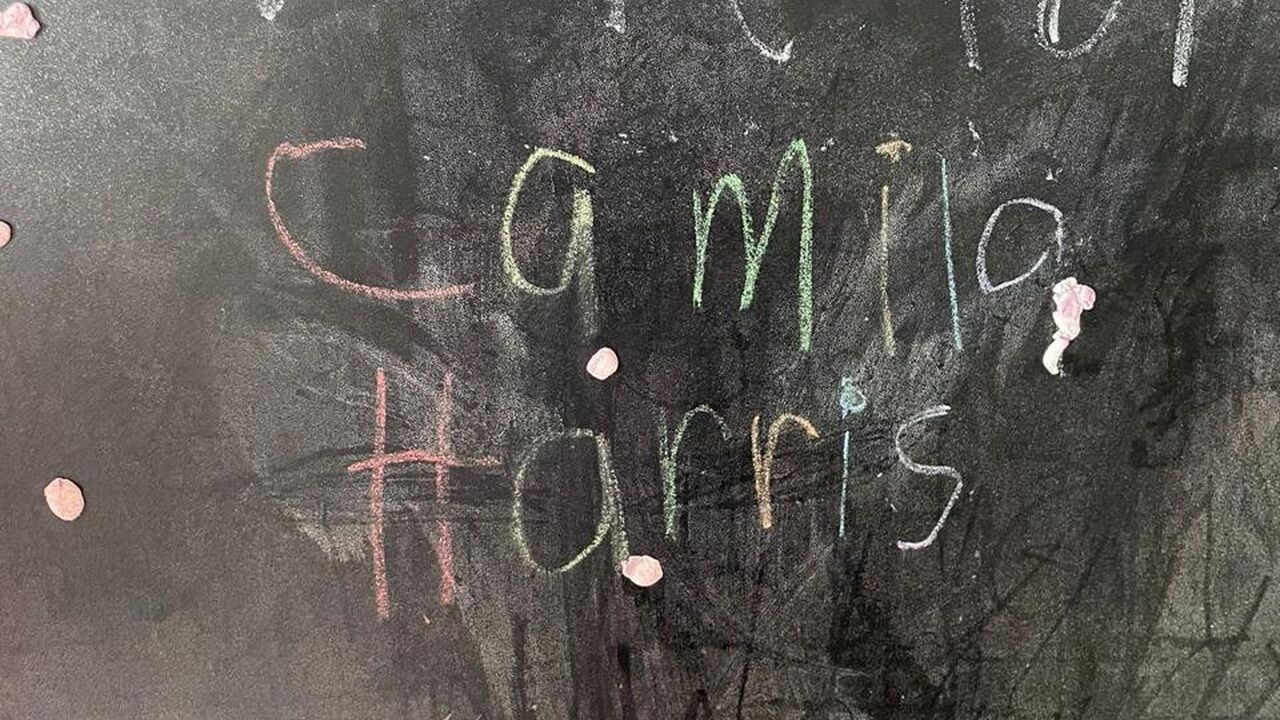 Camila
Harris